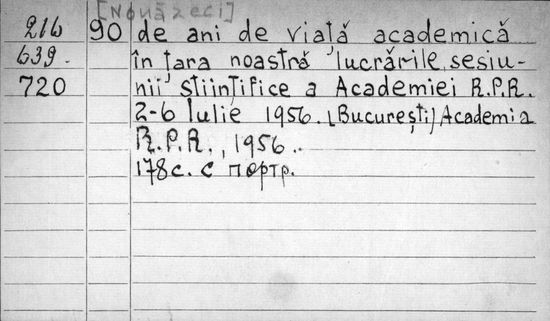 [Nouăzeci]
216 90 de ani de viață academică
639. în țara noastră lucrările sesiu-
720 nii științifice a Academiei R.P.R.
2-6 Iulie 1956. [București] Academia
R.P.R., 1956.
178 c. с портр.